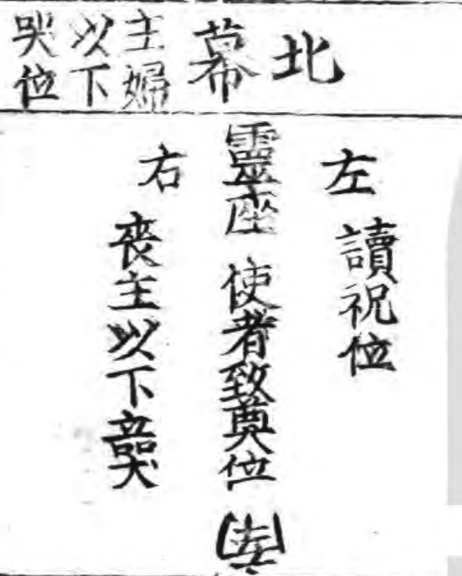 北
幕
主婦
以下
哭位
左
讀祝位
靈座 使者致奠位
右
喪主以下立哭